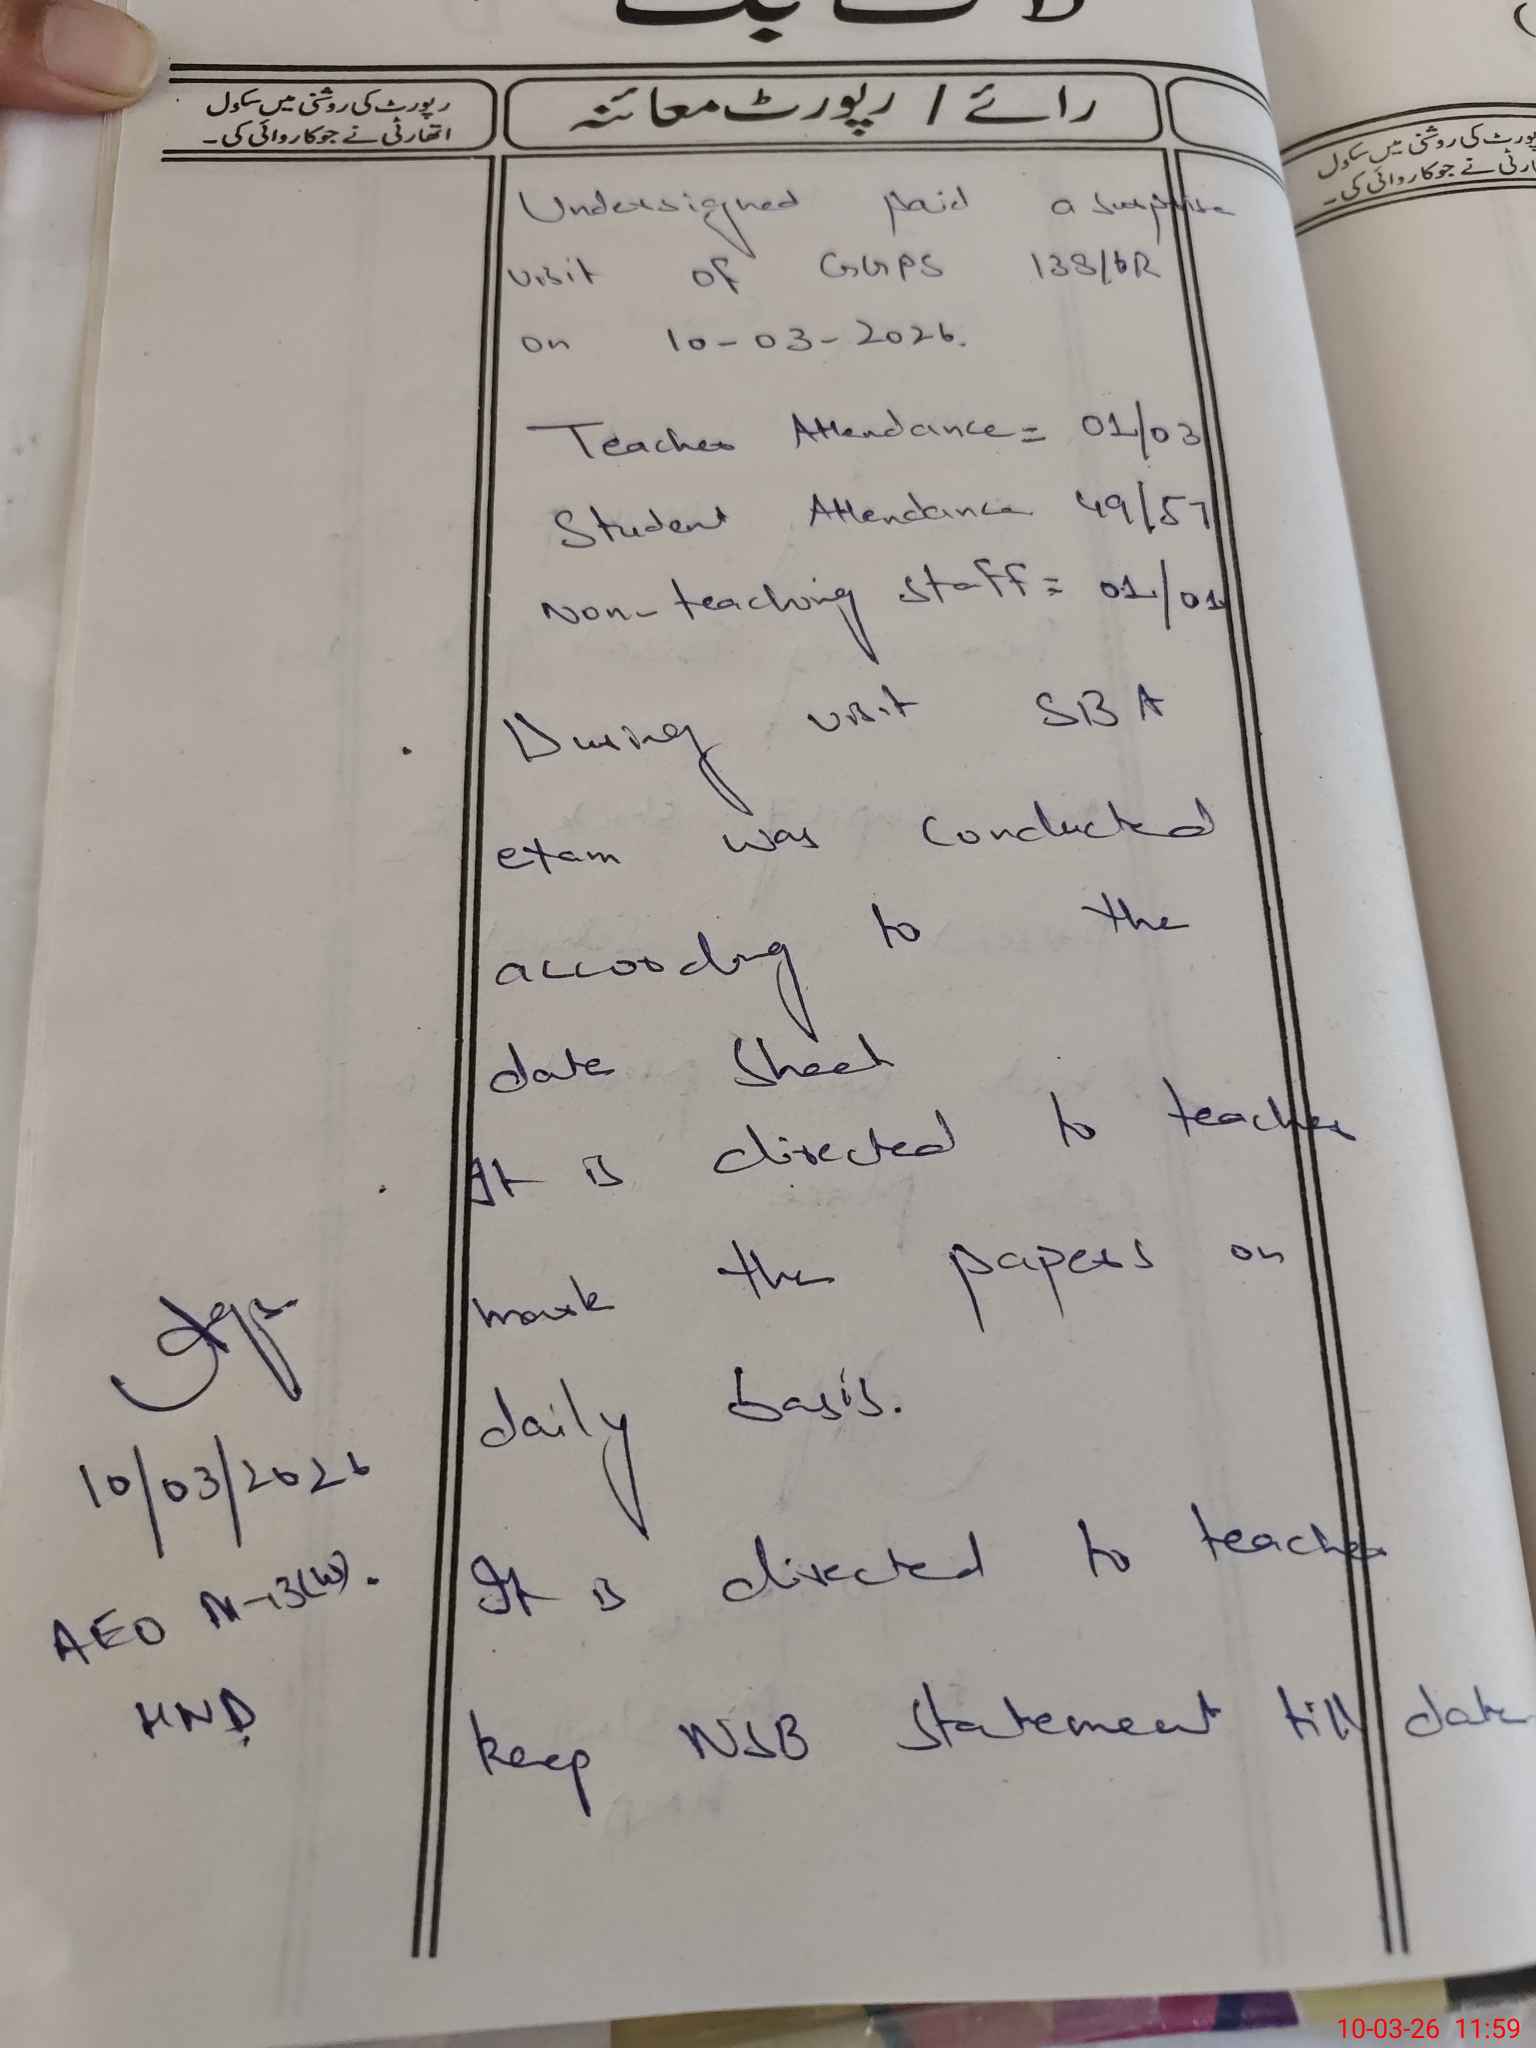 لاگ بک
رپورٹ کی روشنی میں سکول
اتھارٹی نے جو کاروائی کی۔
رائے / رپورٹ معائنہ
Undersigned paid a surprise
visit of GGPS 138/6R
on 10-03-2026.
Teacher Attendance = 01/03
Student Attendance 49/57
Non-teaching staff = 01/01
During visit SBA
exam was conducted
according to the
date sheet
It is directed to teacher
mark the papers on
daily basis.
It is directed to teacher
keep NSB statement till date
10/03/2026
AEO M-13(W).
HND
رپورٹ کی روشنی میں سکول
نے جو کاروائی کی۔
10-03-26 11:59